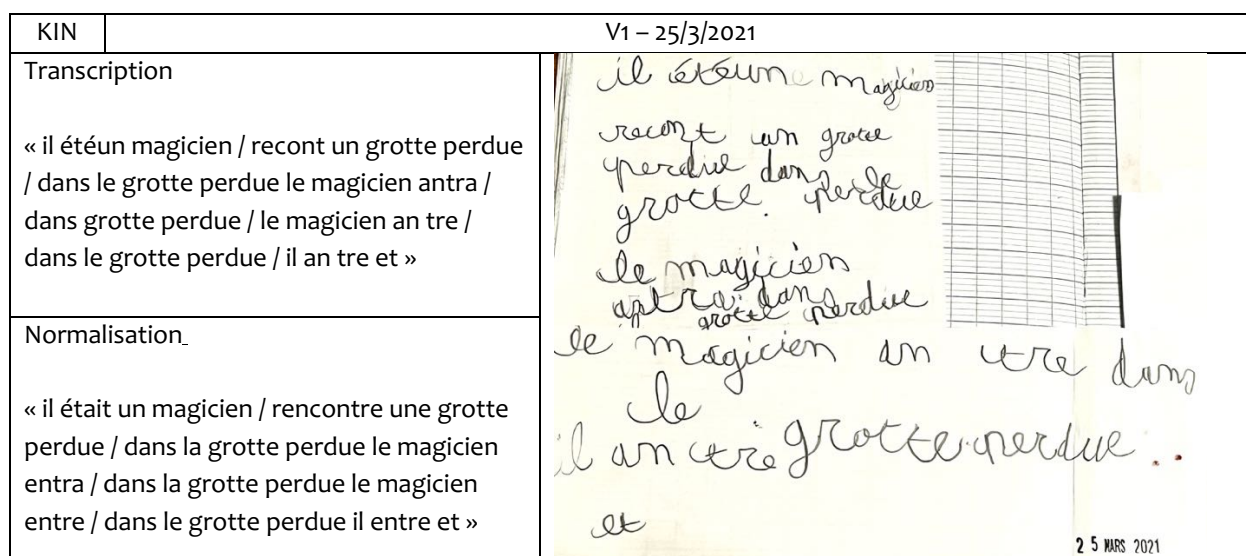 KIN
V1 – 25/3/2021
Transcription
« il étéun magicien / recont un grotte perdue
/ dans le grotte perdue le magicien antra /
dans grotte perdue / le magicien an tre /
dans le grotte perdue / il an tre et »
Normalisation
« il était un magicien / rencontre une grotte
perdue / dans la grotte perdue le magicien
entra / dans la grotte perdue le magicien
entre / dans le grotte perdue il entre et »
il étéun magicien
recont un grotte
perdue dans le
grotte perdue
le magicien
antra dans
grotte perdue
le magicien an tre dans
le
il an tre grotte perdue..
et
2 5 MARS 2021